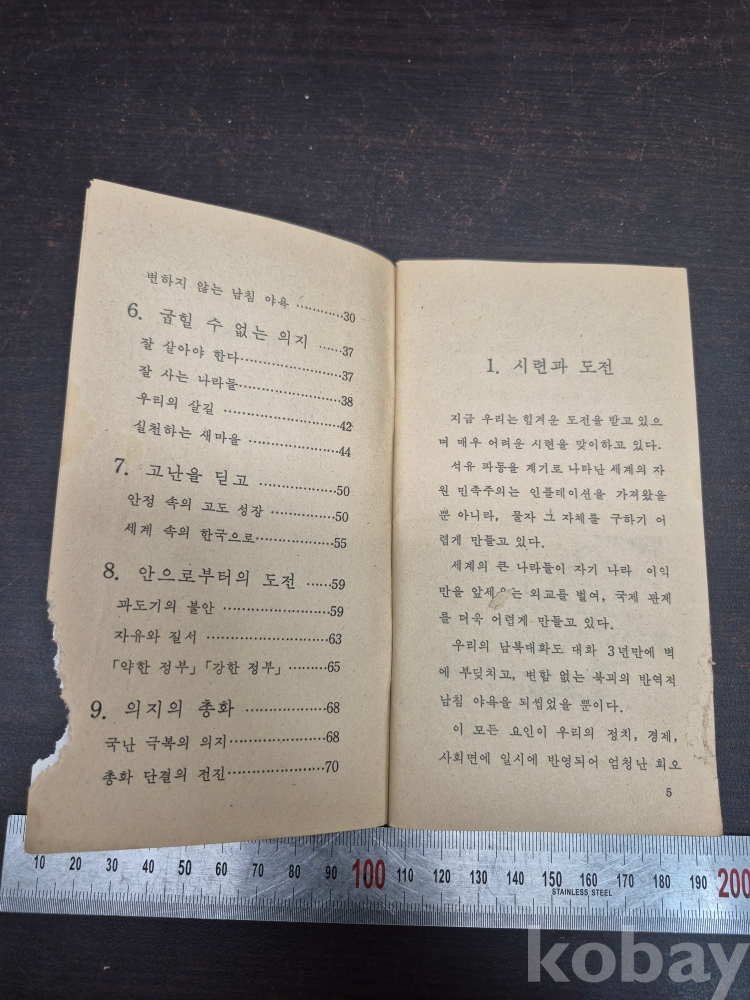 변하지 않는 남침 야욕 …………30
6. 굽힐 수 없는 의지 ……37
잘 살아야 한다……………………37
잘 사는 나라들……………………38
우리의 살길 ………………………42
실천하는 새마을 …………………44
7. 고난을 딛고 …………………50
안정 속의 고도 성장 ……………50
세계 속의 한국으로………………55
8. 안으로부터의 도전 ……59
과도기의 불안 ……………………59
자유와 질서 ………………………63
「약한 정부」「강한 정부」………65
9. 의지의 총화 …………………68
국난 극복의 의지…………………68
총화 단결의 전진…………………70
1. 시련과 도전
지금 우리는 힘겨운 도전을 받고 있으
며 매우 어려운 시련을 맞이하고 있다.
석유 파동을 계기로 나타난 세계의 자
원 민족주의는 인플레이션을 가져왔을
뿐 아니라, 물자 그 자체를 구하기 어
렵게 만들고 있다.
세계의 큰 나라들이 자기 나라 이익
만을 앞세 는 외교를 벌여, 국제 관계
를 더욱 어렵게 만들고 있다.
우리의 남북대화도 대화 3년만에 벽
에 부딪치고, 변함 없는 북괴의 반역적
남침 야욕을 되씹었을 뿐이다.
이 모든 요인이 우리의 정치, 경제,
사회면에 일시에 반영되어 엄청난 회오
5
10 20 30 40 50 60 70 80 90 100 110 120 130 140 150 160 170 180 190 200
STAINLESS STEEL
kobay